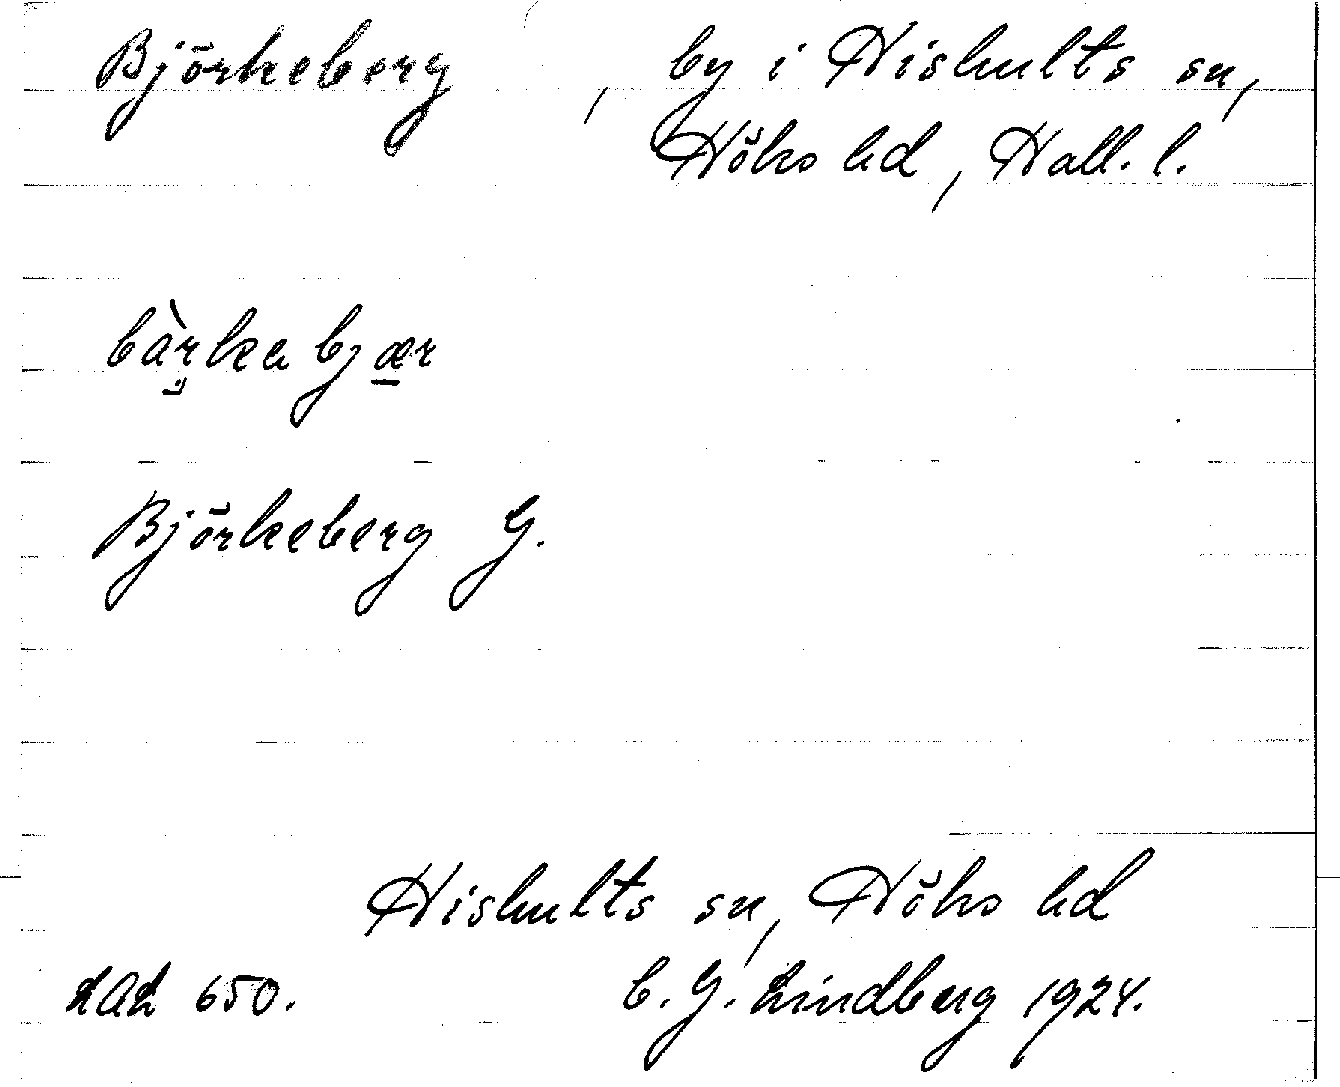 Björkeberg, by i Hishults sn,
Höks hd, Hall. l.
bàrka bjær
Björkeberg G.
Hishults sn, Höks hd
LAL 650. C. G. Lindberg 1924.